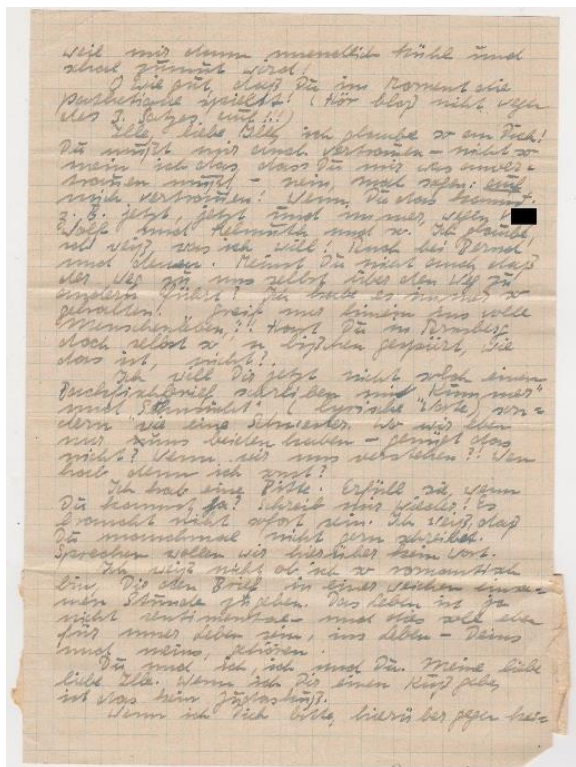 weil mir dann unendlich kühl und
schal zumut wird!
O wie gut, daß Du im Moment die
pathetische spielst! (Hör bloß nicht wegen
des 3. Satzes auf!!!)
Ille, liebe Ille, ich glaube so an Dich!
Du mußt mir auch vertrauen – nicht so
mein ich das dass Du mir was anver-
trauen mußt – nein, mal sagen: auf
mich vertrauen! Wenn Du das kannst.
z. B. jetzt, jetzt und immer, wegen
Wolf und Helmuth und so. Ich glaube
ich weiß was ich will! Auch bei Bernd!
und denen. Meinst Du nicht auch daß
der Weg zu uns selbst über den Weg zu
andern führt? Ich habe es immer so
gehalten! Greif nur hinein ins volle
Menschenleben,!! Hast Du in
doch selbst so 'n bißchen gespürt, wie
das ist, nicht?
Ich will Dir jetzt nicht solch einen
Backfischbrief schreiben mit „Kummer"
und Sehnsucht! (lyrische Note) son-
dern wie eine Schwester. Wo wir eben
nur uns beiden haben – genügt das
nicht? Wenn wir uns verstehen?! Wen
hab denn ich sonst?
Ich hab eine Bitte. Erfüll sie, wenn
Du kannst, ja? Schreib mir wieder! Es
braucht nicht sofort sein. Ich weiß, daß
Du manchmal nicht gern schreibst.
Sprechen wollen wir hierüber kein Wort.
Ich weiß nicht ob ich so romantisch
bin, Dir den Brief in einer weichen einsa-
men Stunde zu geben. Das Leben ist ja
nicht sentimental – und das soll eben
für unser Leben sein, ins Leben – Deins
und meins, gehören.
Du und ich, ich und Du. Meine liebe
liebe Ille. Wenn ich Dir einen Kuß gebe,
ist das kein Judaskuß.
Wenn ich Dich bitte, hierüber gegen kei-